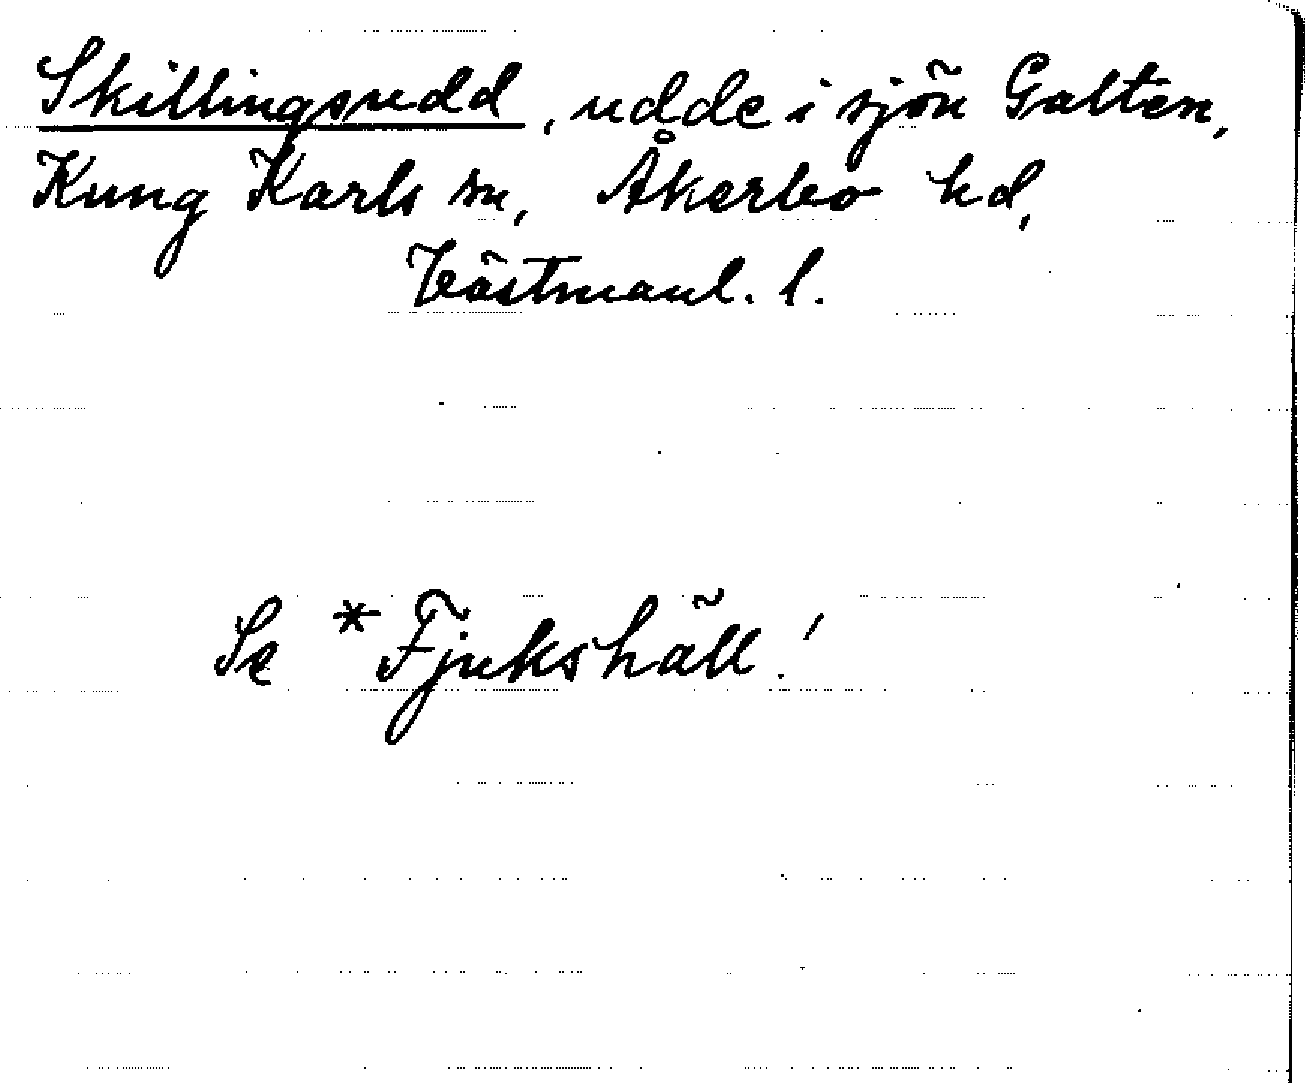 Skillingsudd, udde i sjön Galten,
Kung Karls sn, Åkerbo hd,
Västmanl. l.
Se *Fjukshäll!